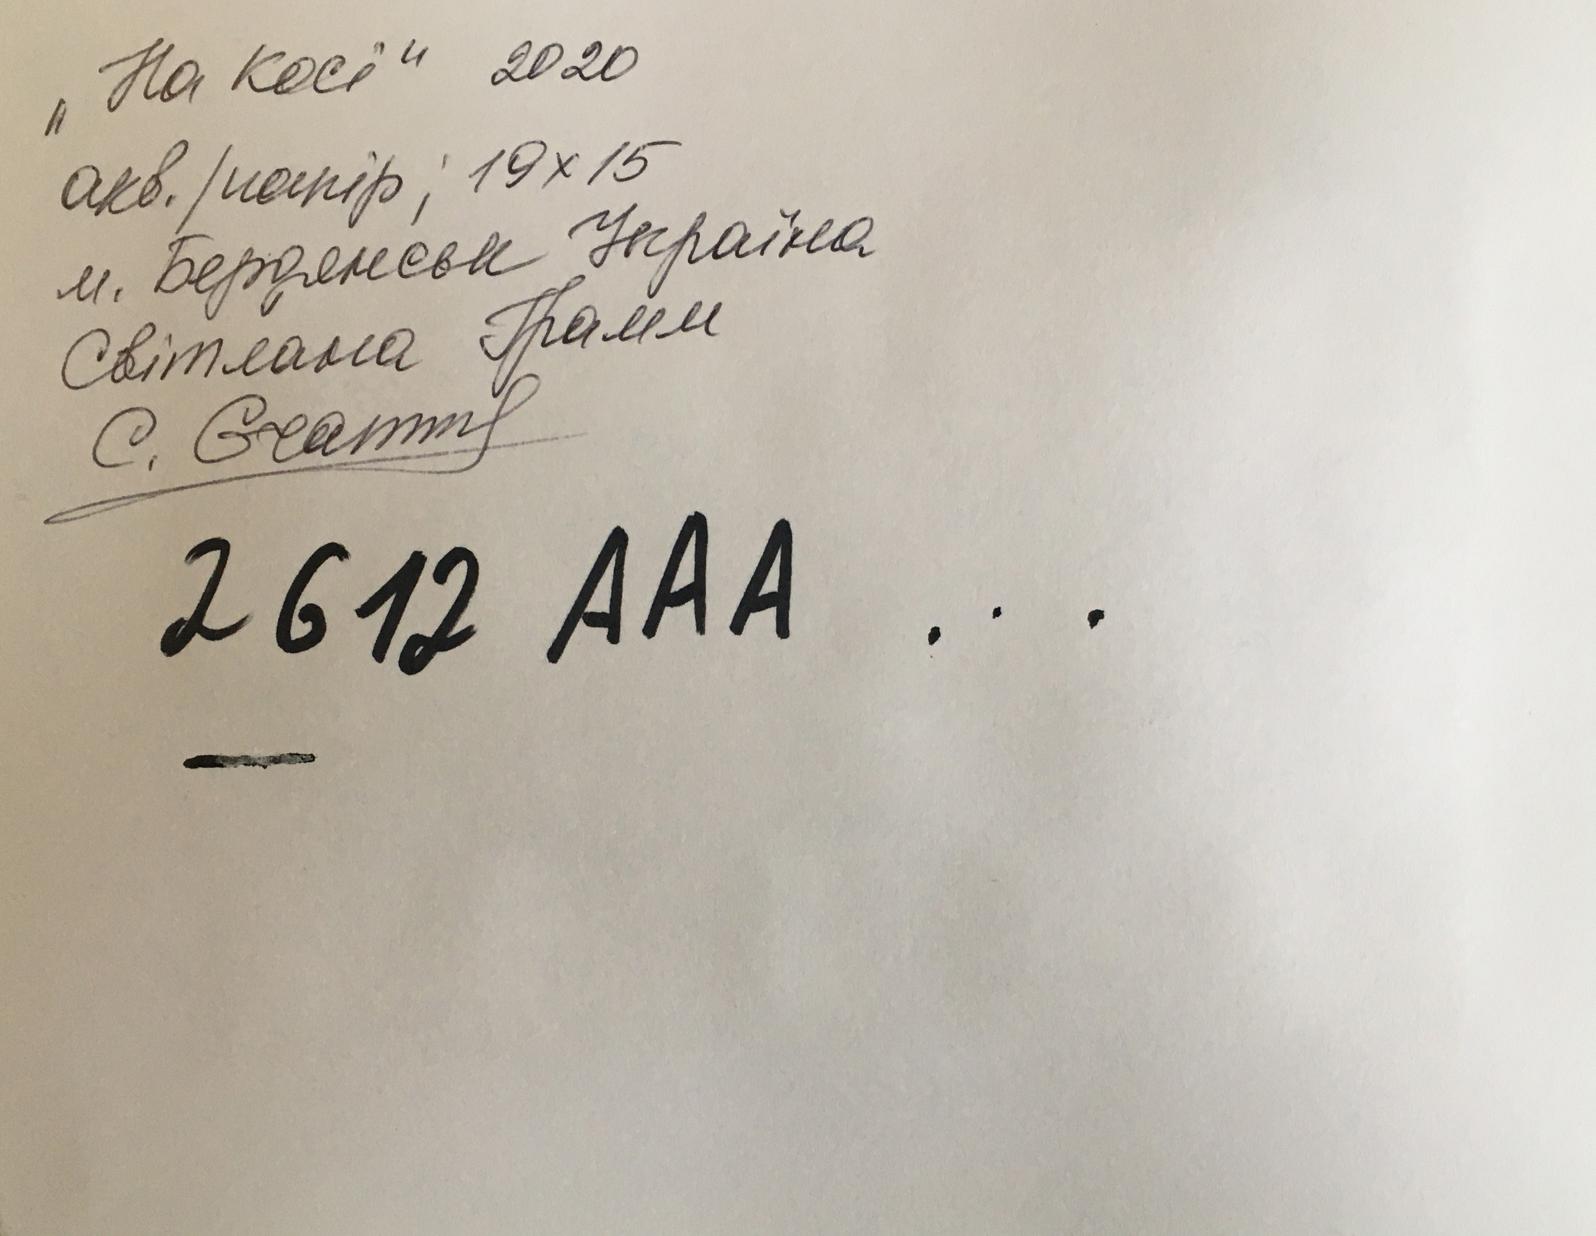 „На косі“ 2020
акв./папір; 19х15
м. Бердянськ Україна
Світлана Грамм
С. Gрамм
2612 AAA ...